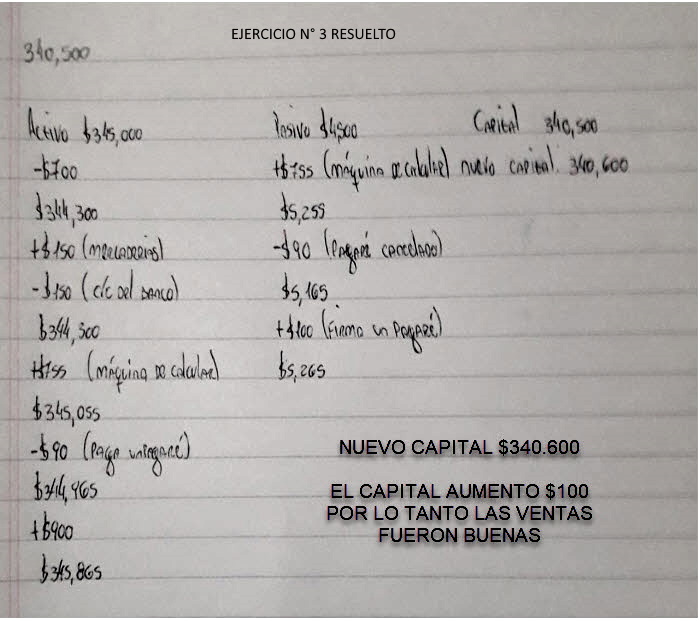 EJERCICIO N° 3 RESUELTO
340,500
Activo $345,000 Pasivo $4,500 Capital 340,500
-$700 +$755 (máquina de calcular) nuevo capital: 340,600
$344,300 $5,255
+$150 (mercaderías) -$90 (Pagaré cancelado)
-$150 (c/c del banco) $5,165
$344,300 +$100 (Firma un Pagaré)
+$755 (máquina de calcular) $5,265
$345,055
-$90 (Paga un Pagaré)
$344,965
+$900
$345,865
NUEVO CAPITAL $340.600
EL CAPITAL AUMENTO $100
POR LO TANTO LAS VENTAS
FUERON BUENAS